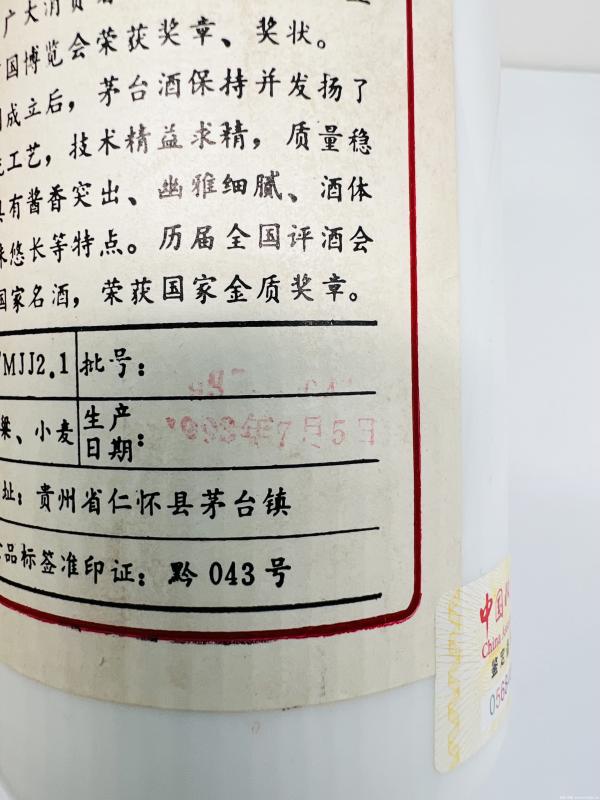 广大消费
国博览会荣获奖章、奖状。
成立后，茅台酒保持并发扬了
工艺，技术精益求精，质量稳
具有酱香突出、幽雅细腻、酒体
味悠长等特点。历届全国评酒会
国家名酒，荣获国家金质奖章。
MJJ2.1 批号：
粱、小麦 生产日期： 1993年7月5日
址：贵州省仁怀县茅台镇
品标签准印证：黔043号
中国
China
鉴定
0568